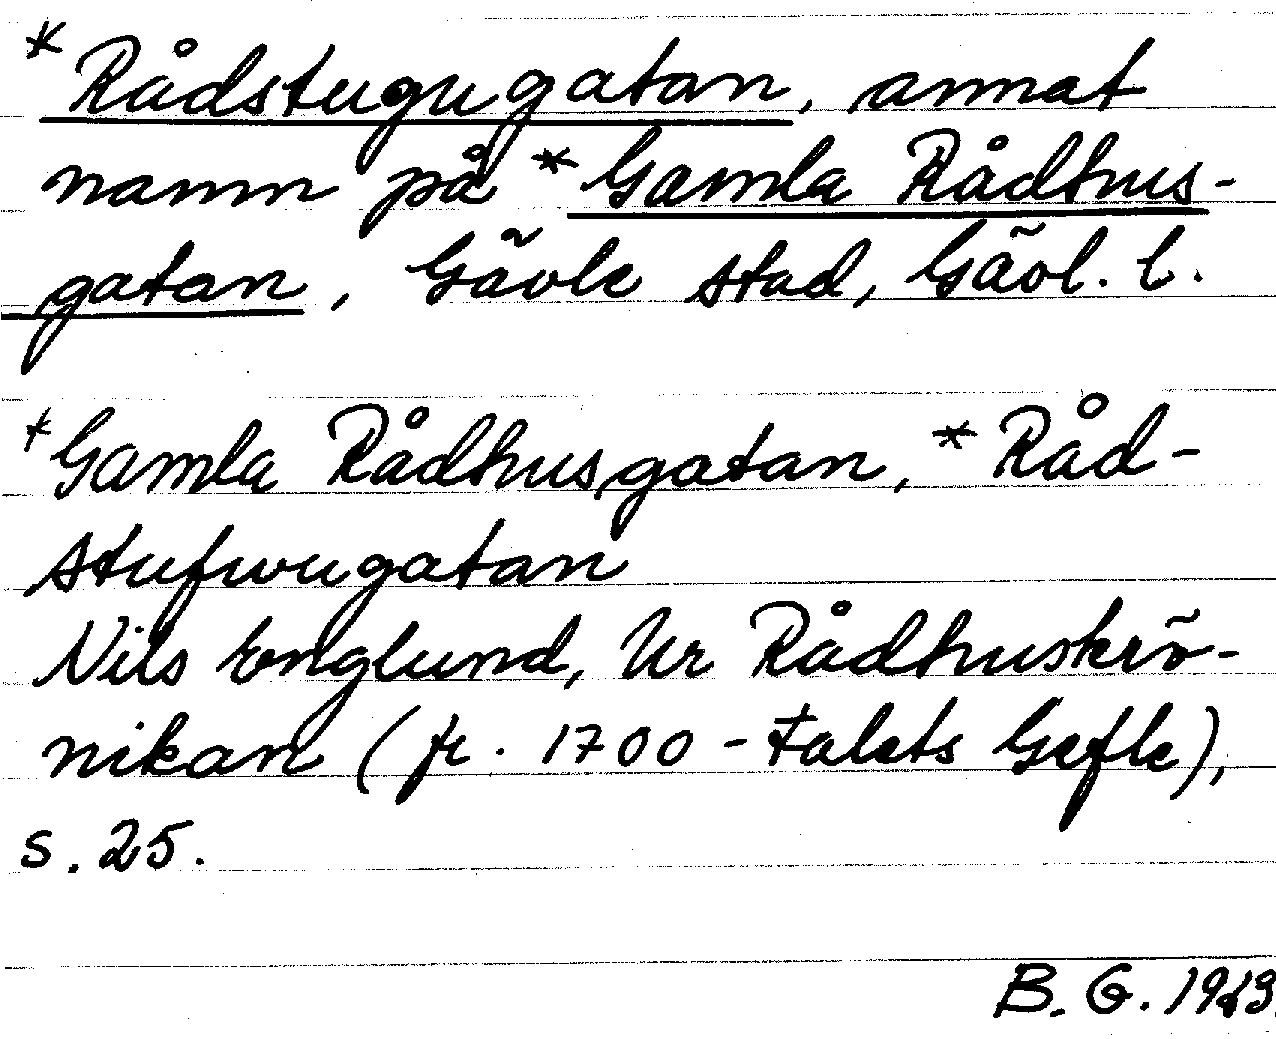 *Rådstugugatan, annat
namn på *Gamla Rådhus-
gatan, Gävle stad, Gävl. l.
*Gamla Rådhusgatan, *Råd-
stufwugatan
Nils Englund, Ur Rådhuskrö-
nikan (fr. 1700-talets Gefle),
s. 25.
B. G. 1943